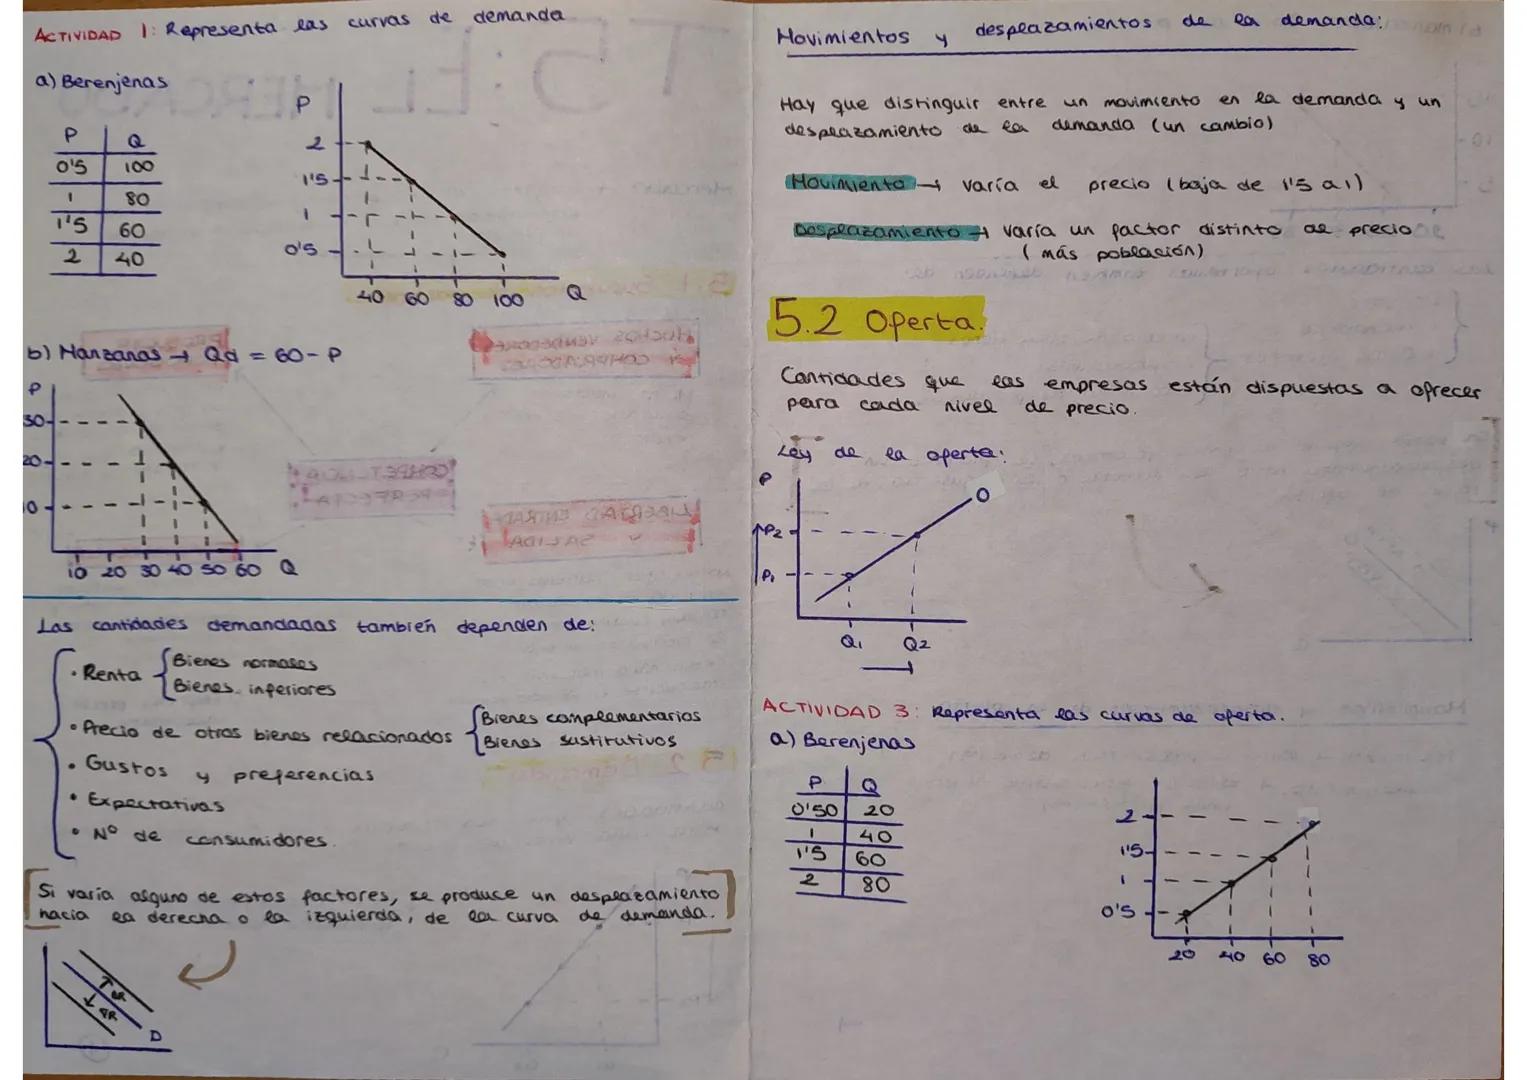 ACTIVIDAD 1: Representa las curvas de demanda
a) Berenjenas
P Q
0'5 100
1 80
1'5 60
2 40
P
2
1'5
1
0'5
40 60 80 100 Q
b) Manzanas → Qd = 60 - P
P
30
20
10
10 20 30 40 50 60 Q
Las cantidades demandadas también dependen de:
· Renta
Bienes normales
Bienes inferiores
· Precio de otros bienes relacionados
Bienes complementarios
Bienes sustitutivos
· Gustos y preferencias
· Expectativas
· Nº de consumidores.
Si varía alguno de estos factores, se produce un desplazamiento
hacia la derecha o la izquierda, de la curva de demanda.
D
Movimientos y desplazamientos de la demanda:
Hay que distinguir entre un movimiento en la demanda y un
desplazamiento de la demanda (un cambio)
Movimiento → varía el precio (baja de 1'5 a 1)
Desplazamiento → varía un factor distinto de precio
(más población)
5.2 Oferta.
Cantidades que las empresas están dispuestas a ofrecer
para cada nivel de precio.
Ley de la oferta:
P
O
↑P2
P1
Q1 Q2
→
ACTIVIDAD 3: Representa las curvas de oferta.
a) Berenjenas
P Q
0'50 20
1 40
1'5 60
2 80
2
1'5
1
0'5
20 40 60 80